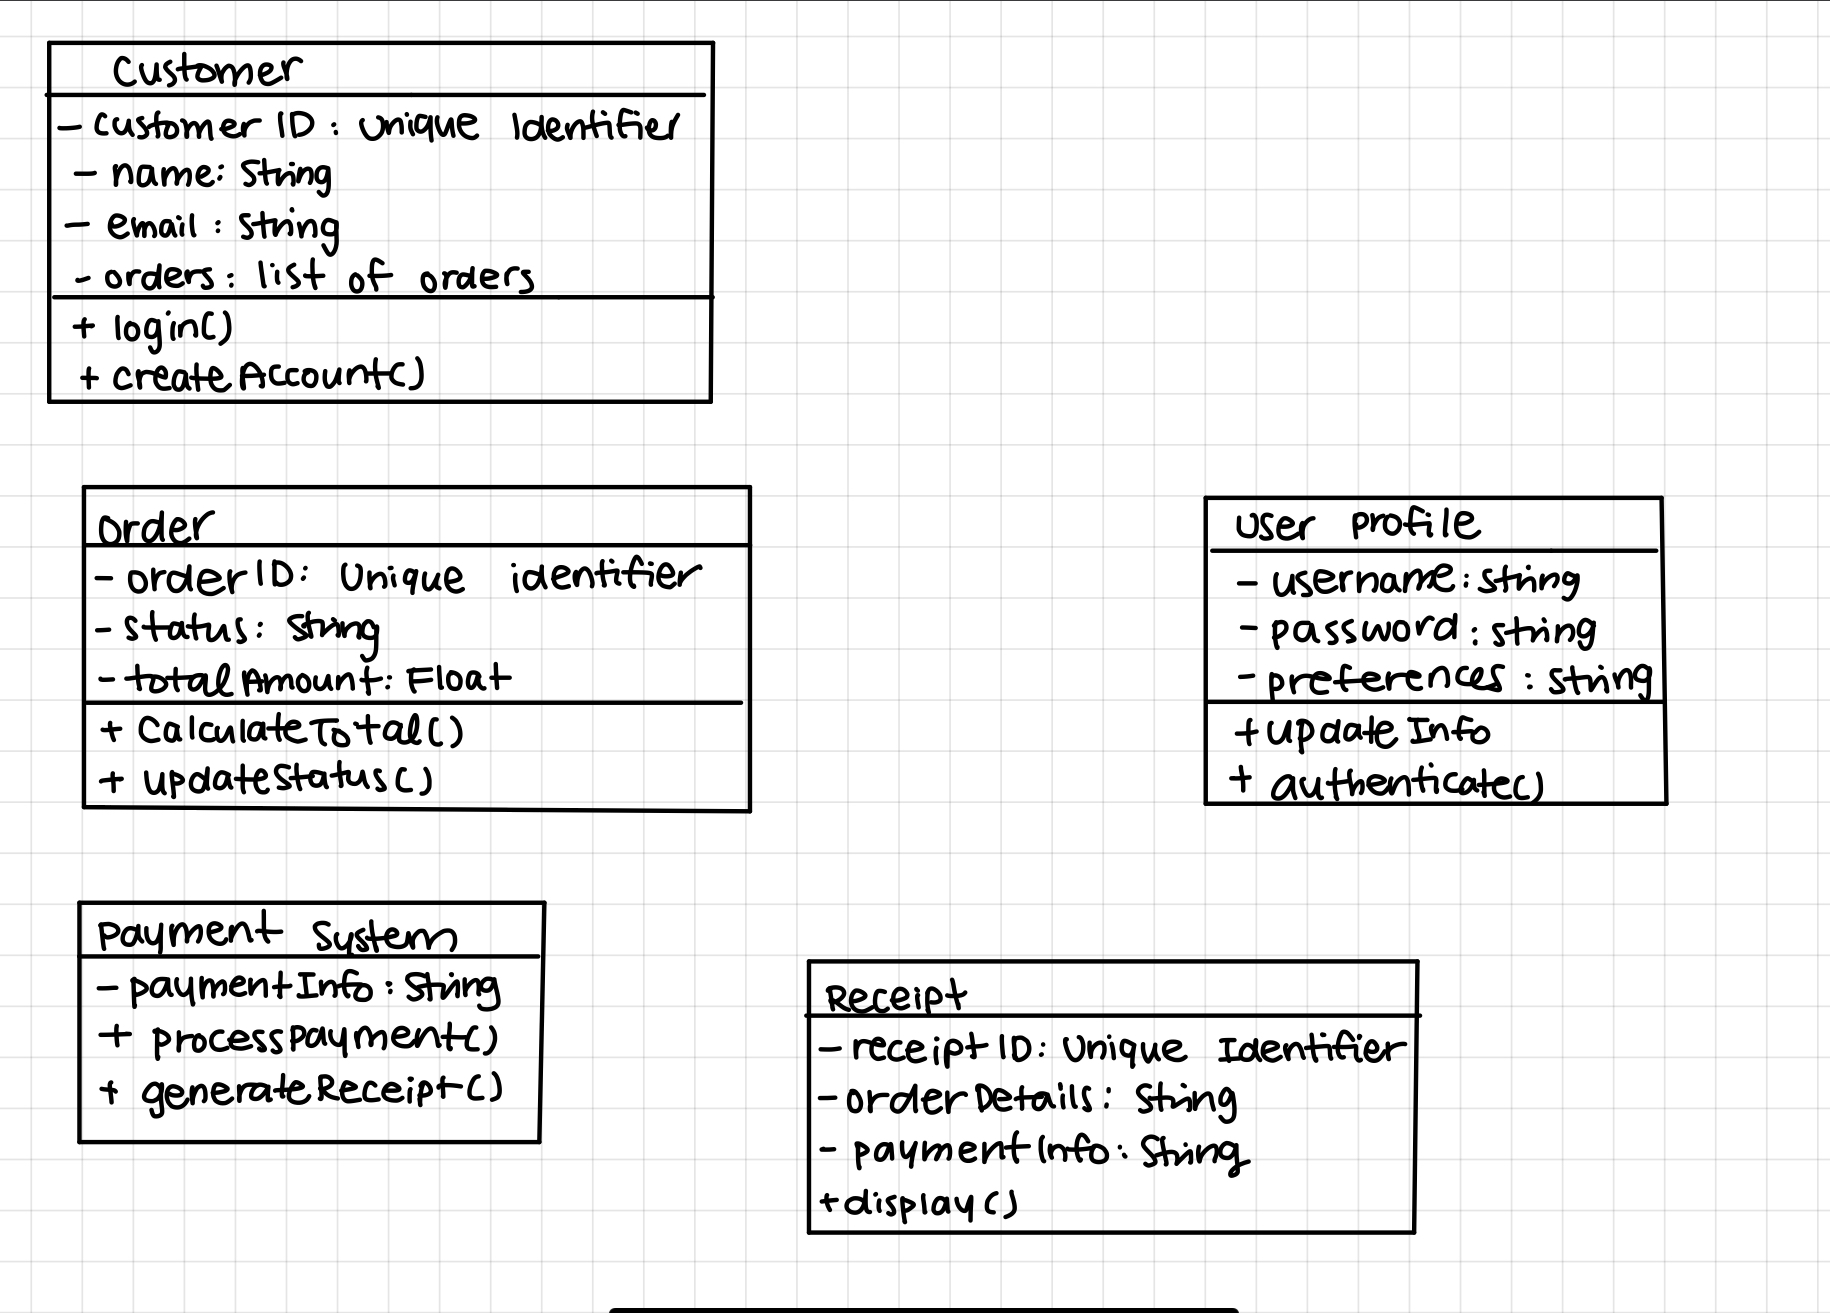 Customer
- customer ID : Unique Identifier
- name: String
- email : String
- orders: list of orders
+ login()
+ createAccount()
Order
- orderID: Unique identifier
- status: String
- totalAmount: Float
+ CalculateTotal()
+ updateStatus()
User Profile
- username: string
- password: string
- preferences: string
+ updateInfo
+ authenticate()
Payment System
- paymentInfo: String
+ processPayment()
+ generateReceipt()
Receipt
- receiptID: Unique Identifier
- orderDetails: String
- paymentInfo: String
+ display()